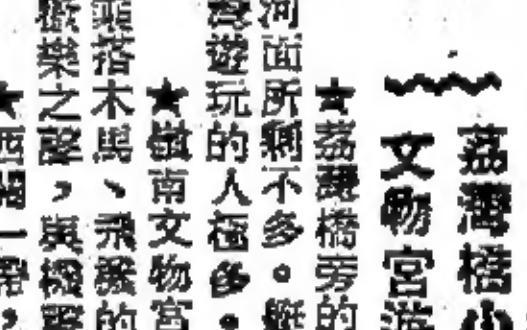 荔灣橋小
文物宮遊
★荔灣橋旁的
河面所剩不多。艇
灣遊玩的人極多。
★嶺南文物宮
乘搭木馬、飛機的
歡樂之聲,與機聲
★西關一帶,